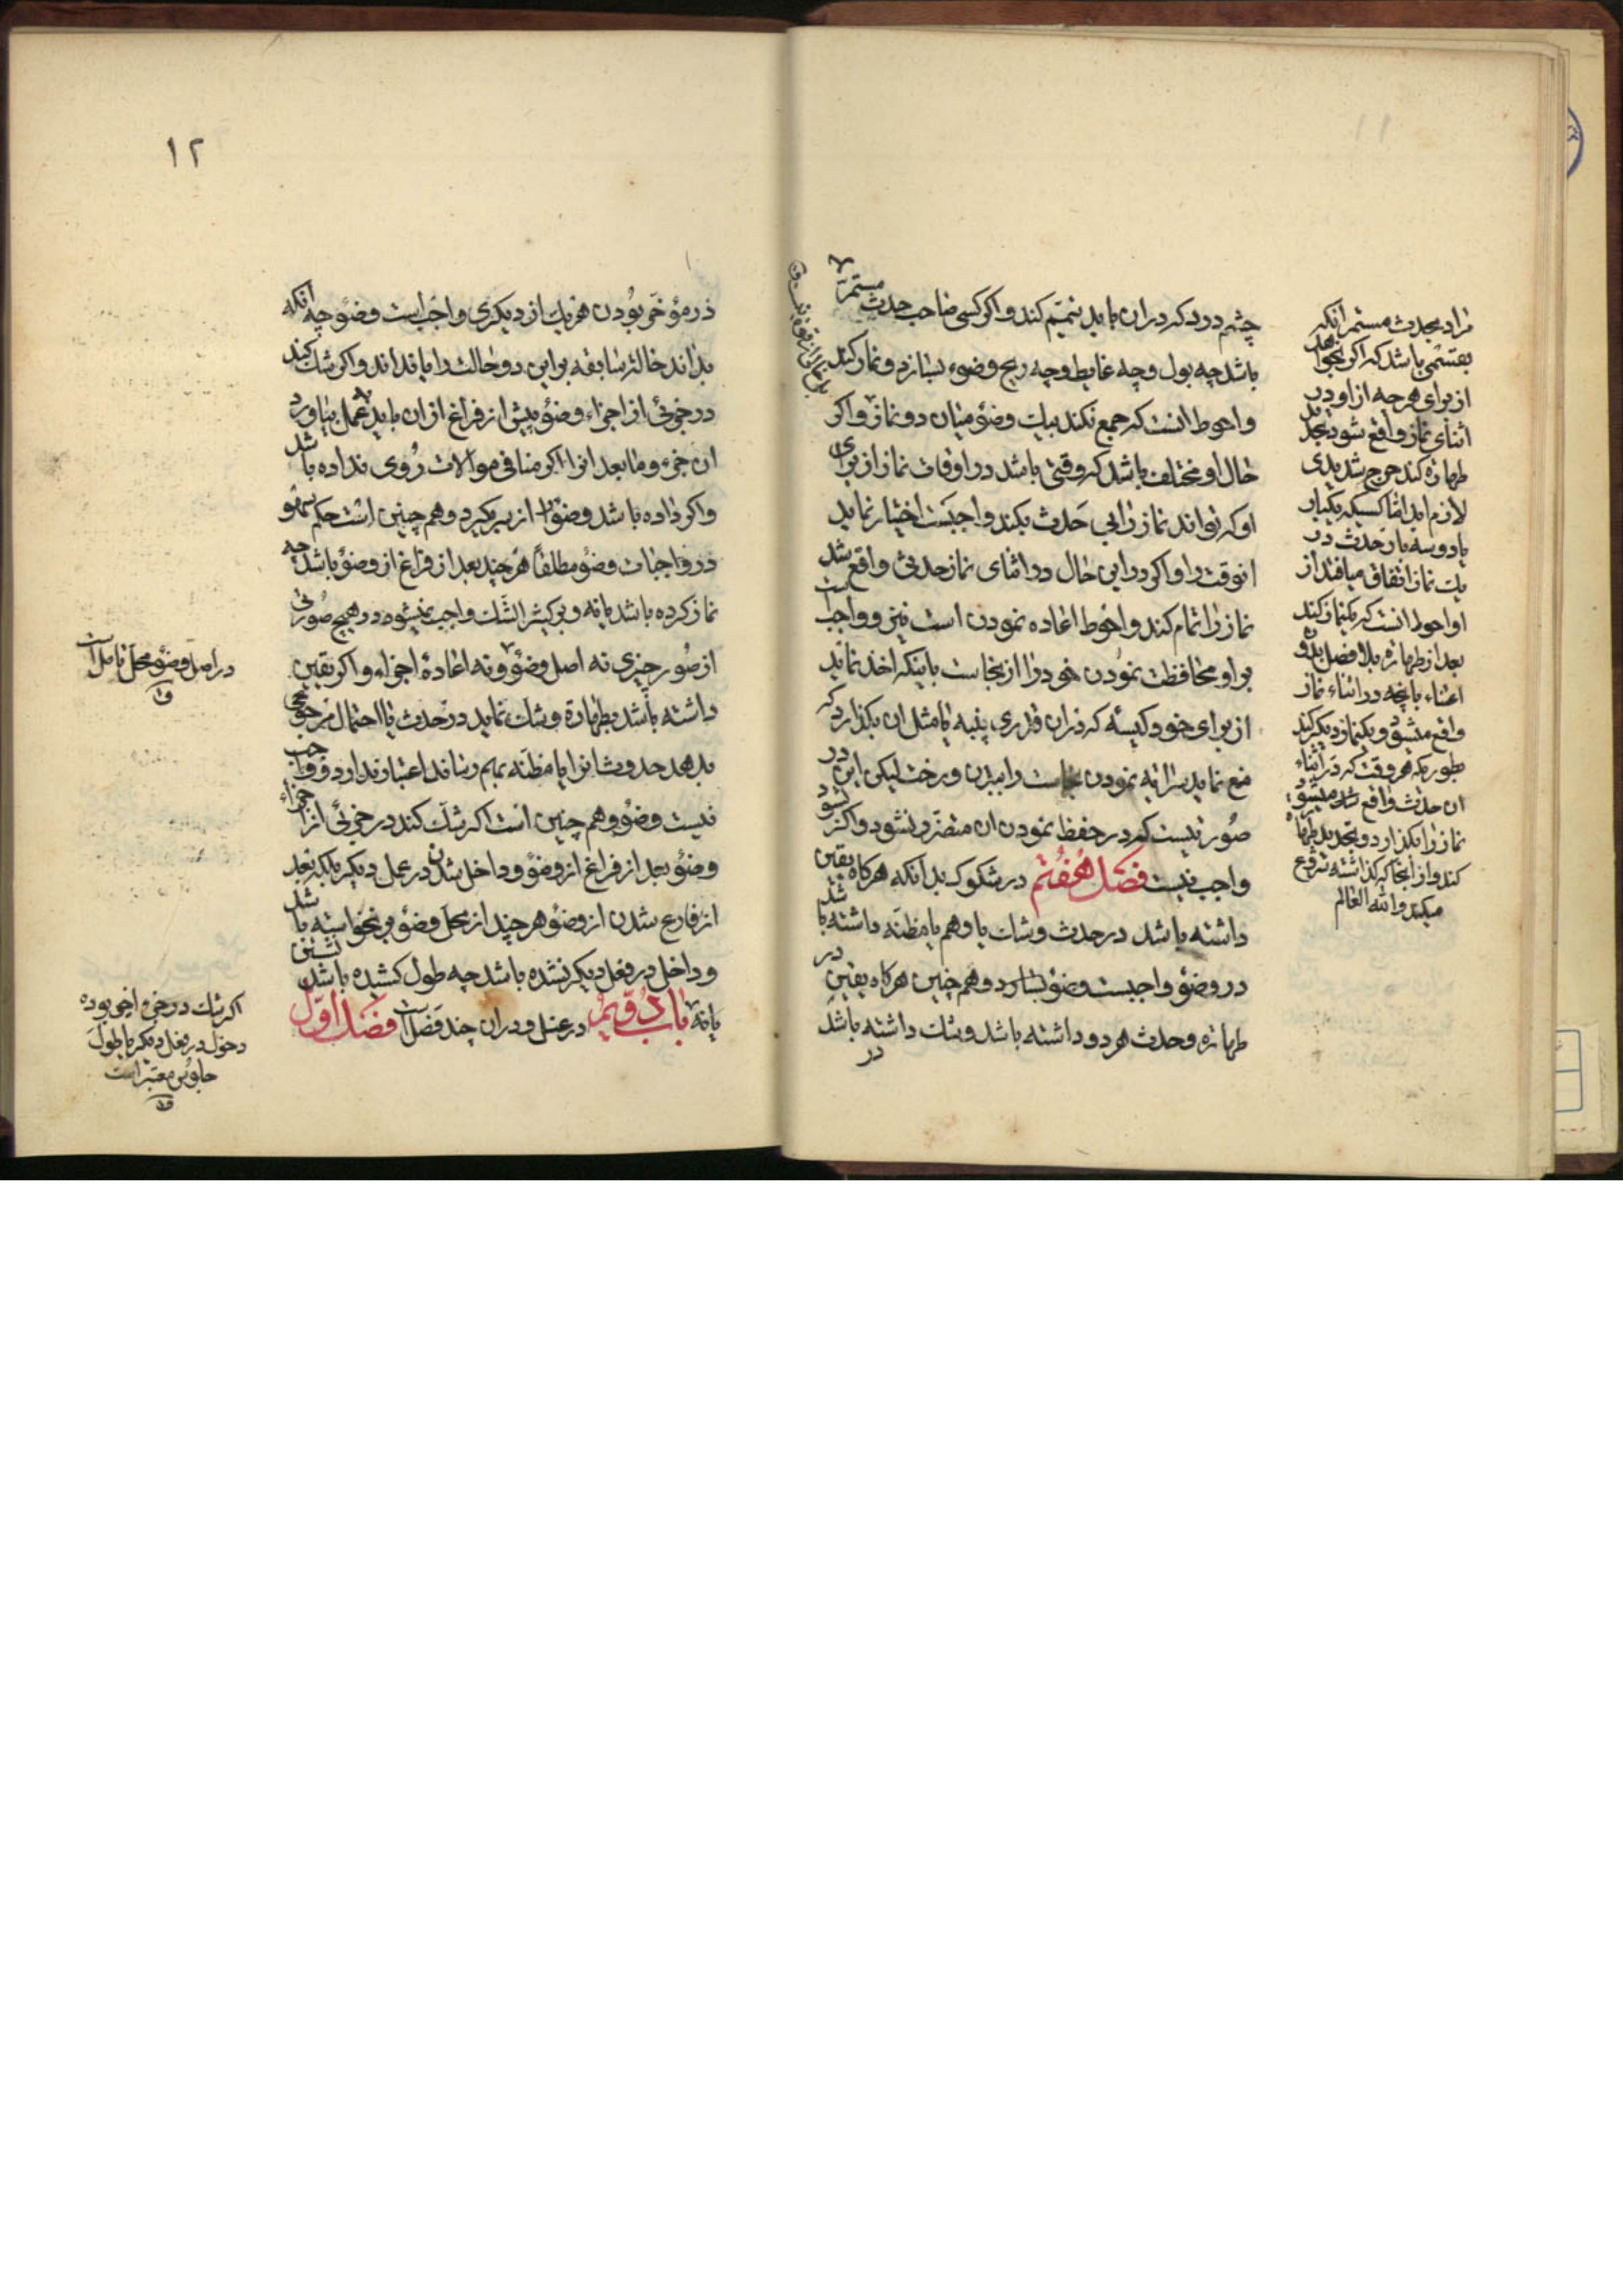 ۱۱
چشم درد که در ان باید تیمّم کند و اکر کسی صاحب حدث مستمرّ
باشد چه بول و چه غایط و چه ریح وضوء بسازد و نماز کند
و احوط انست که جمع نکند بیک وضؤ میان دو نماز و اکر
حال او مختلف باشد که وقتی باشد در اوقات نماز از برای
او که تواند نماز را بی حَدث بکند واجبَست اختیار نماید
انوقت را و اکر در این حال در اثنای نماز حدثی واقع شد
نماز را تمام کند و احوط اعاده نمودن است نیز و واجب است
بر او محافظت نمودن خود را از نجاست باینکه اخذ نماید
از برای خود کیسهٔ که در ان قدری پنبه یا مثل ان بکذارد که
منع نماید سرایه نمودن نجاست را ببدن و رخت لیکن این در
صُورتیست که در حفظ نمودن ان متضرّر نشود و اکر نشود
واجب نیست فصَل هُفتم در شکوک بدانکه هرکاه یقین
داشته باشد در حدث و شک یا وهم یا مظنّه داشته باشد
در وضؤ واجبست وضؤ بسازد و هم چنین هرکاه یقین در
طهارة و حدث هر دو داشته باشد و شک داشته باشد
در
مراد بحدث مستمر آنکه
بقسمی باشد که اکر بخواهد
از برای هرچه از او در
اثنای نماز واقع شود تجدید
طهارة کند حرج شدیدی
لازم اید امّا کسیکه یکبار
یا دو سه بار حدث در
یک نماز اتفاق میافتد از
او احوط انست که یکنماز کند
بعد از طهارة بلا فصل بدون
اعتناء بانچه در اثناء نماز
واقع میشود و یکنماز دیکر کند
بطوریکه هر وقت که در اثناء
ان حدث واقع شد میشود
نماز را بکذارد و تجدید طهارة
کند و از انجا که کذاشته شروع
میکند و الله العالم
۱۲
در مؤخّر بودن هر یک از دیکری واجب است وضؤ چه آنکه
بداند حالة سابقه بر این دو حالت را یا نداند و اکر شک کند
در جزئی از اجزاء وضؤ پیش از فراغ از ان باید بعمل بیاورد
ان جزء و ما بعد انرا اکر منافی موالات رُوی نداده باشد
و اکر داده باشد وضؤ را از سر بکیرد و هم چنین است حکم سهو
در واجبات وضؤ مطلقاً هر چند بعد از فراغ از وضؤ باشد چه
نماز کرده باشد یا نه و بر کثیر الشّک واجب نمیشود در هیچ صُورتی
از صُور چیزی نه اصل وضؤ و نه اعادهٔ اجزاء و اکر یقین
داشته باشد بطهارة و شک نماید در حدث یا احتمال مرجوحی
بدهد حدوث انرا یا مظنّه بهم رساند اعتبار ندارد و واجب
نیست وضؤ و هم چنین است اکر شک کند در جزئی از اجزاء
وضؤ بعد از فراغ از وضؤ و داخل شدن در عمل دیکر بلکه بعد
از فارغ شدن از وضؤ هر چند از محل وضؤ بر نخواسته باشد
و داخل در فعل دیکر نشده باشد چه طول کشیده باشد نشستن
یا نه باب دویّم در غسل و در ان چند فصَل است فصَل اوّل
در اصل وضؤ محلّ تامل است
اکر شک در جزء اخیر بوده
دخول در فعل دیکر یا طول
جلوس معتبر است